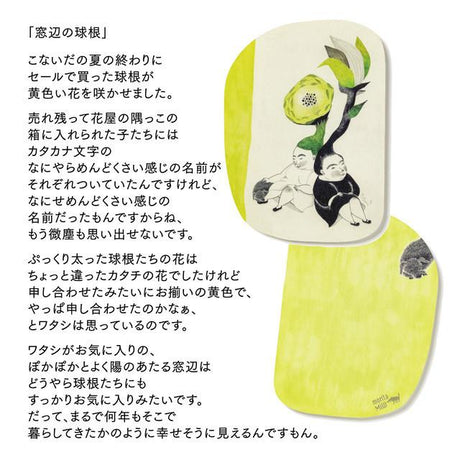 「窓辺の球根」
こないだの夏の終わりに
セールで買った球根が
黄色い花を咲かせました。
売れ残って花屋の隅っこの
箱に入れられた子たちには
カタカナ文字の
なにやらめんどくさい感じの名前が
それぞれついていたんですけれど、
なにせめんどくさい感じの
名前だったもんですからね、
もう微塵も思い出せないです。
ぷっくり太った球根たちの花は
ちょっと違ったカタチの花でしたけれど
申し合わせたみたいにお揃いの黄色で、
やっぱ申し合わせたのかなぁ、
とワタシは思っているのです。
ワタシがお気に入りの、
ぽかぽかとよく陽のあたる窓辺は
どうやら球根たちにも
すっかりお気に入りみたいです。
だって、まるで何年もそこで
暮らしてきたかのように幸せそうに見えるんですもん。
morita
MiW